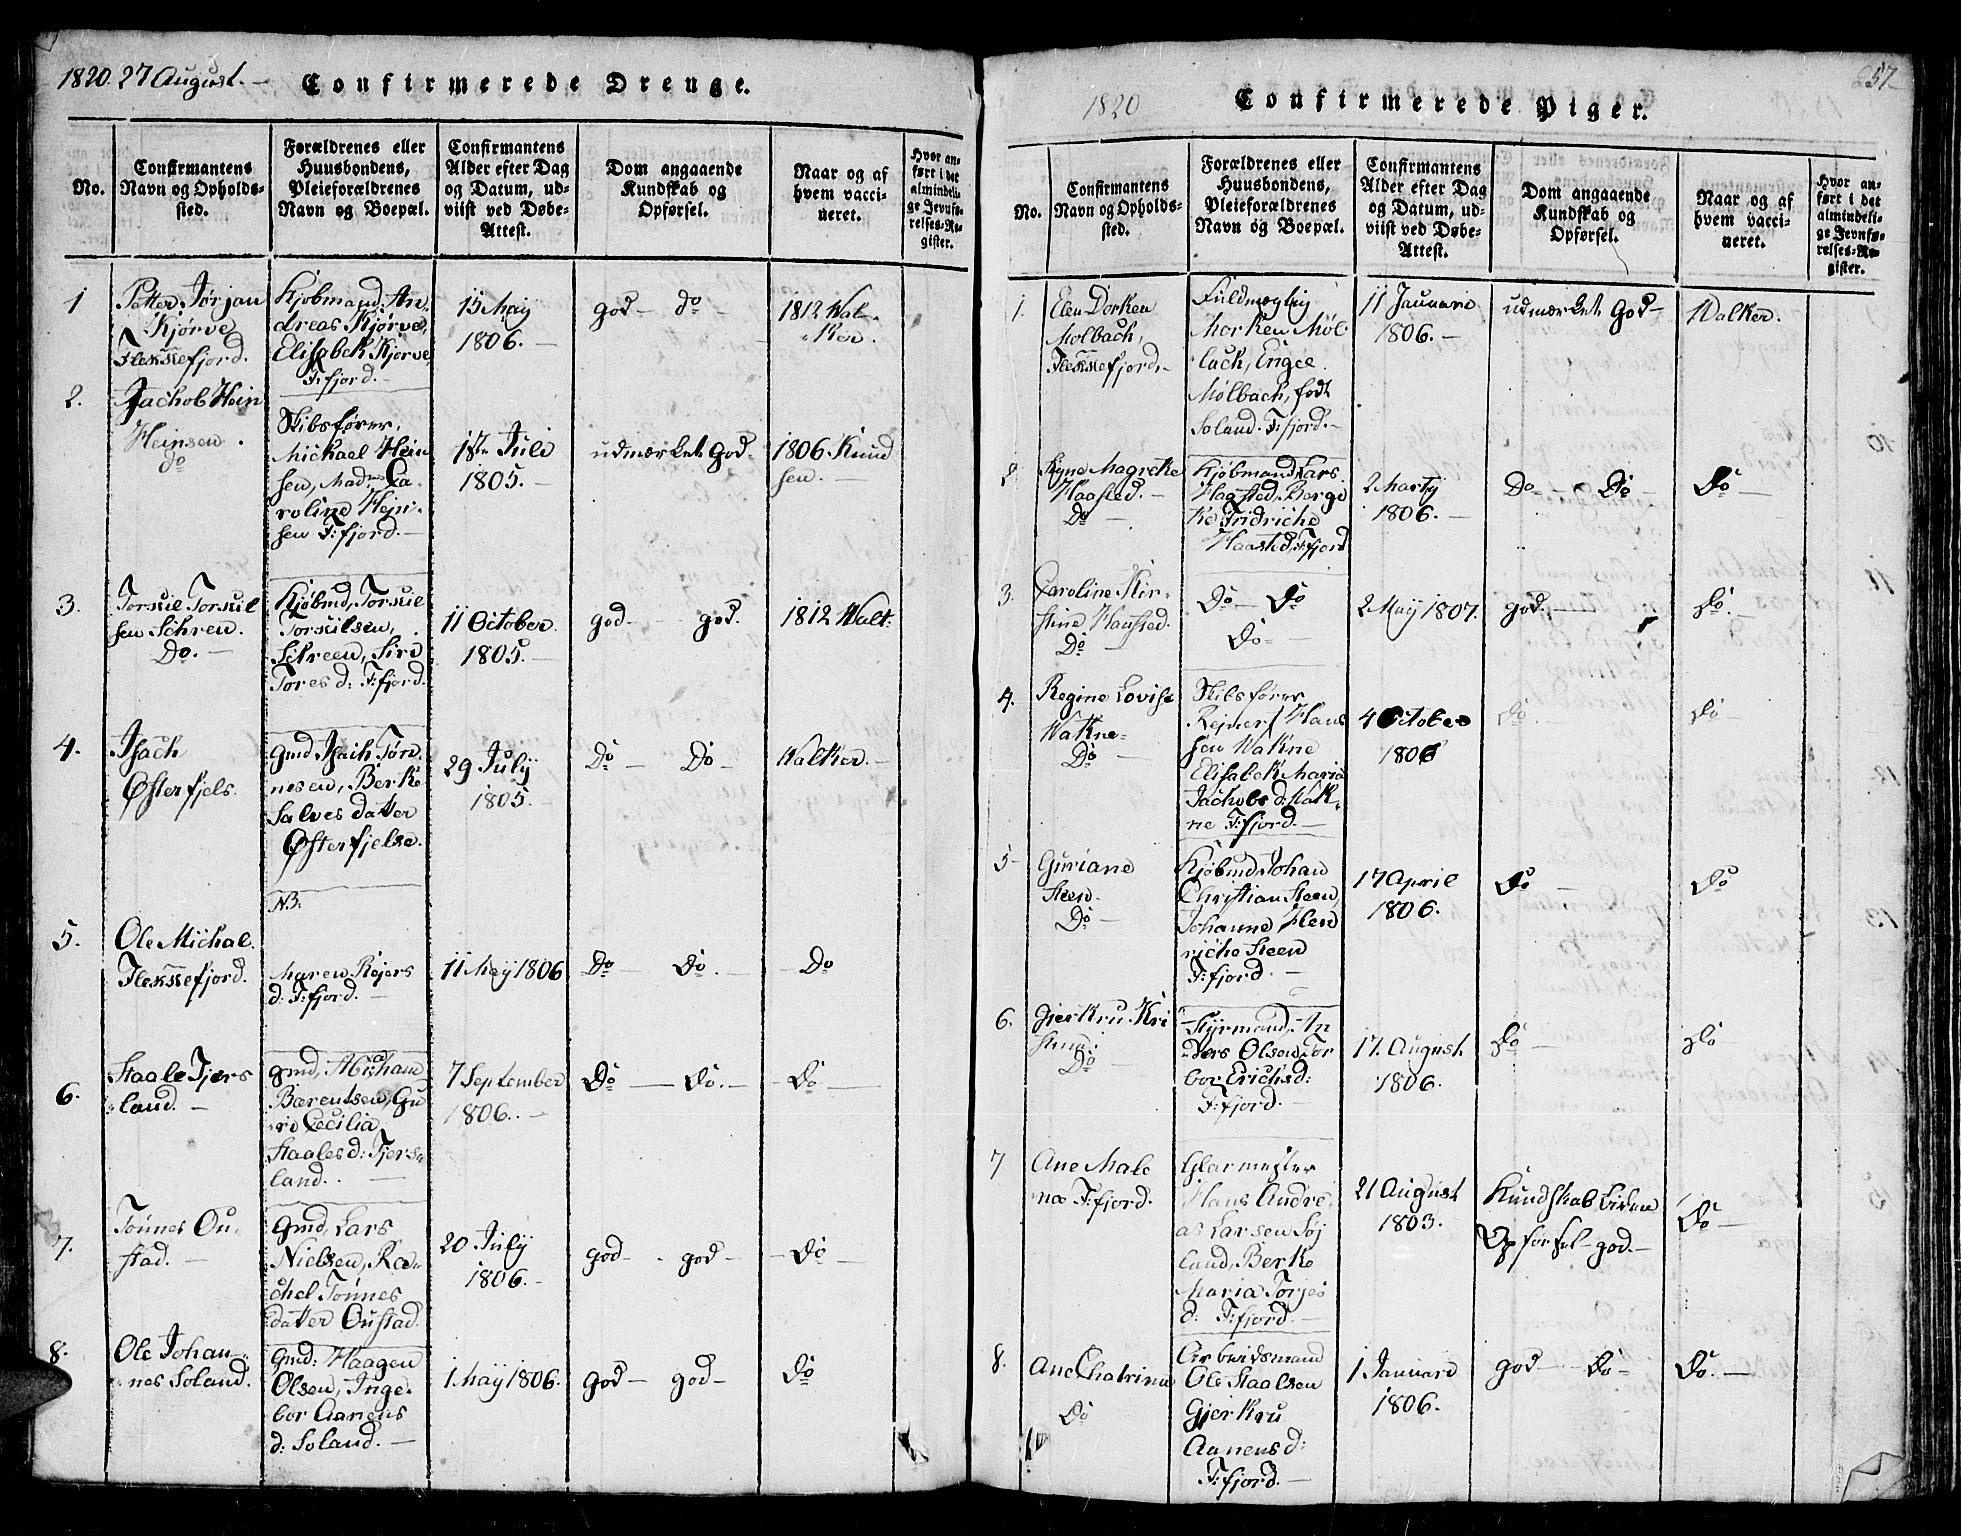 1820. 27 August. —
Confirmerede Drenge.
No.
Confirmantens
Navn og Opholds-
sted.
Forældrenes eller
Huusbondens,
Pleieforældrenes
Navn og Boepæl.
Confirmantens
Alder efter Dag
og Datum, ud-
viist ved Døbe-
Attest.
Dom angaaende
Kundskab og
Opførsel.
Naar og af
hvem vacci-
neret.
Hvor an-
ført i det
almindeli-
ge Jevnfø-
relses-Re-
gister.
1
Petter Jørjan
Kjørve
Flekkefjord.
Kjøbmand An-
dreas Kjørve,
Elisabek Kjørve
F:fjord. —
15 Maij
1806. —
god — do —
1812 Wal-
ker.
2.
Jachob Hein
Heinsen.
do
Skibsfører,
Mickael Hein
sen, Madme Ca-
roline Hein-
sen F:fjord. —
1ste Juli
1805. —
udmærket god.
1806 Knud
sen. —
3.
Torkiel Torkiel
sen Sihren.
Do. —
Kjøbmd, Torkiel
Torkilsen,
Sihreen, Siri
Tores d: F:fjord.
11 October.
1805. —
god — god.
1812 Walk:
4.
Isach
Østerfjels.
Gmd Isaih Tøn-
nesen, Berke
Salves datter
Østerfjelse.
29 Julij
1805. —
Do — Do —
Walker. —
5.
Ole Michal.
Flekkefjord.
NB:
Maren Rejers
d: F:fjord. —
11 Maij 1806
Do — Do. —
— Do
6.
Staale Tjørs
land. —
gmd, Abraham
Bærentsen, Gu
ri Cecilia
Staales d: Tjørs-
land. . —
7 September
1806. . —
Do — Do. —
— Do —
7.
Tønnes Ou-
stad. —
Gmd, Lars
Nielsen, Ra-
chel Tønnes
datter Oustad.
20 Julij
1806. —
god — . god —
— Do —
8.
Ole Johan-
nes Soland.
Gmd: Haagen
Olsen, Inge-
bor Aanens
d: Soland. —
1 Maij 1806.
god — god —
Do
257
1820
Confirmerede Piger.
No.
Confirmantens
Navn og Opholds-
sted.
Forældrenes eller
Huusbondens,
Pleieforældrenes
Navn og Boepæl.
Confirmantens
Alder efter Dag
og Datum, ud-
viist ved Døbe-
Attest.
Dom angaaende
Kundskab og
Opførsel.
Naar og af
hvem vacci-
neret.
Hvor an-
ført i det
almindeli-
ge Jevnfø-
relses-Re-
gister.
1.
Elen Dorken
Mølbach,
Flekkefjord. —
Fuldmægtig
Morken Møl
bach, Engel
Mølbach, født
Soland. F:fjord. —
11 Januari
1806. —
udmærket god —
Walker.
2
Signe Magreke
Haasted. —
Do —
Kjøbmand Lars
Haasted, Berge
ke Fridriche
Haasted, F:fjord
2 Martij
1806. —
Do — Do —
Do —
3.
Caroline Kir-
stine Haasted.
Do —
Do — Do
Do —
2 Maij 1807.
god. —
Do. —
4.
Regine Lovise
Wakne —
Do —
Skibsfører
Rejnert Hans
sen Wakne
Elisabek Maria
Jachobs d: Wak-
ne F:fjord. —
4 October
1806
Do —
Do —
5 —
Guriane
Steen.
Do —
Kjøbmd Johan
Christian Steen,
Johanne Hen
riche Steen
F:fjord. —
17 April
1806.
Do —
Do
6.
Gjerkru Kri
stine.
Do —
Styrmand, An
ders Olsen, Tor
bor Erichsd:
F:fjord. —
17. August
1806.
Do —
Do —
7
Ane Male
ne F:fjord.
Glarmester
Hans Andre
as Larsen Søj
land, Berke
Maria Torjes
d: F:fjord. —
21 August
1803.
Kundskab liden
Opførsel — god. —
Do —
8.
Ane Chatrina
Do
Arbeidsmand
Ole Staalsen
Gjerkru
Aanens d:
F:fjord. —
1 Januari
1806.
god — Do —
Do. —